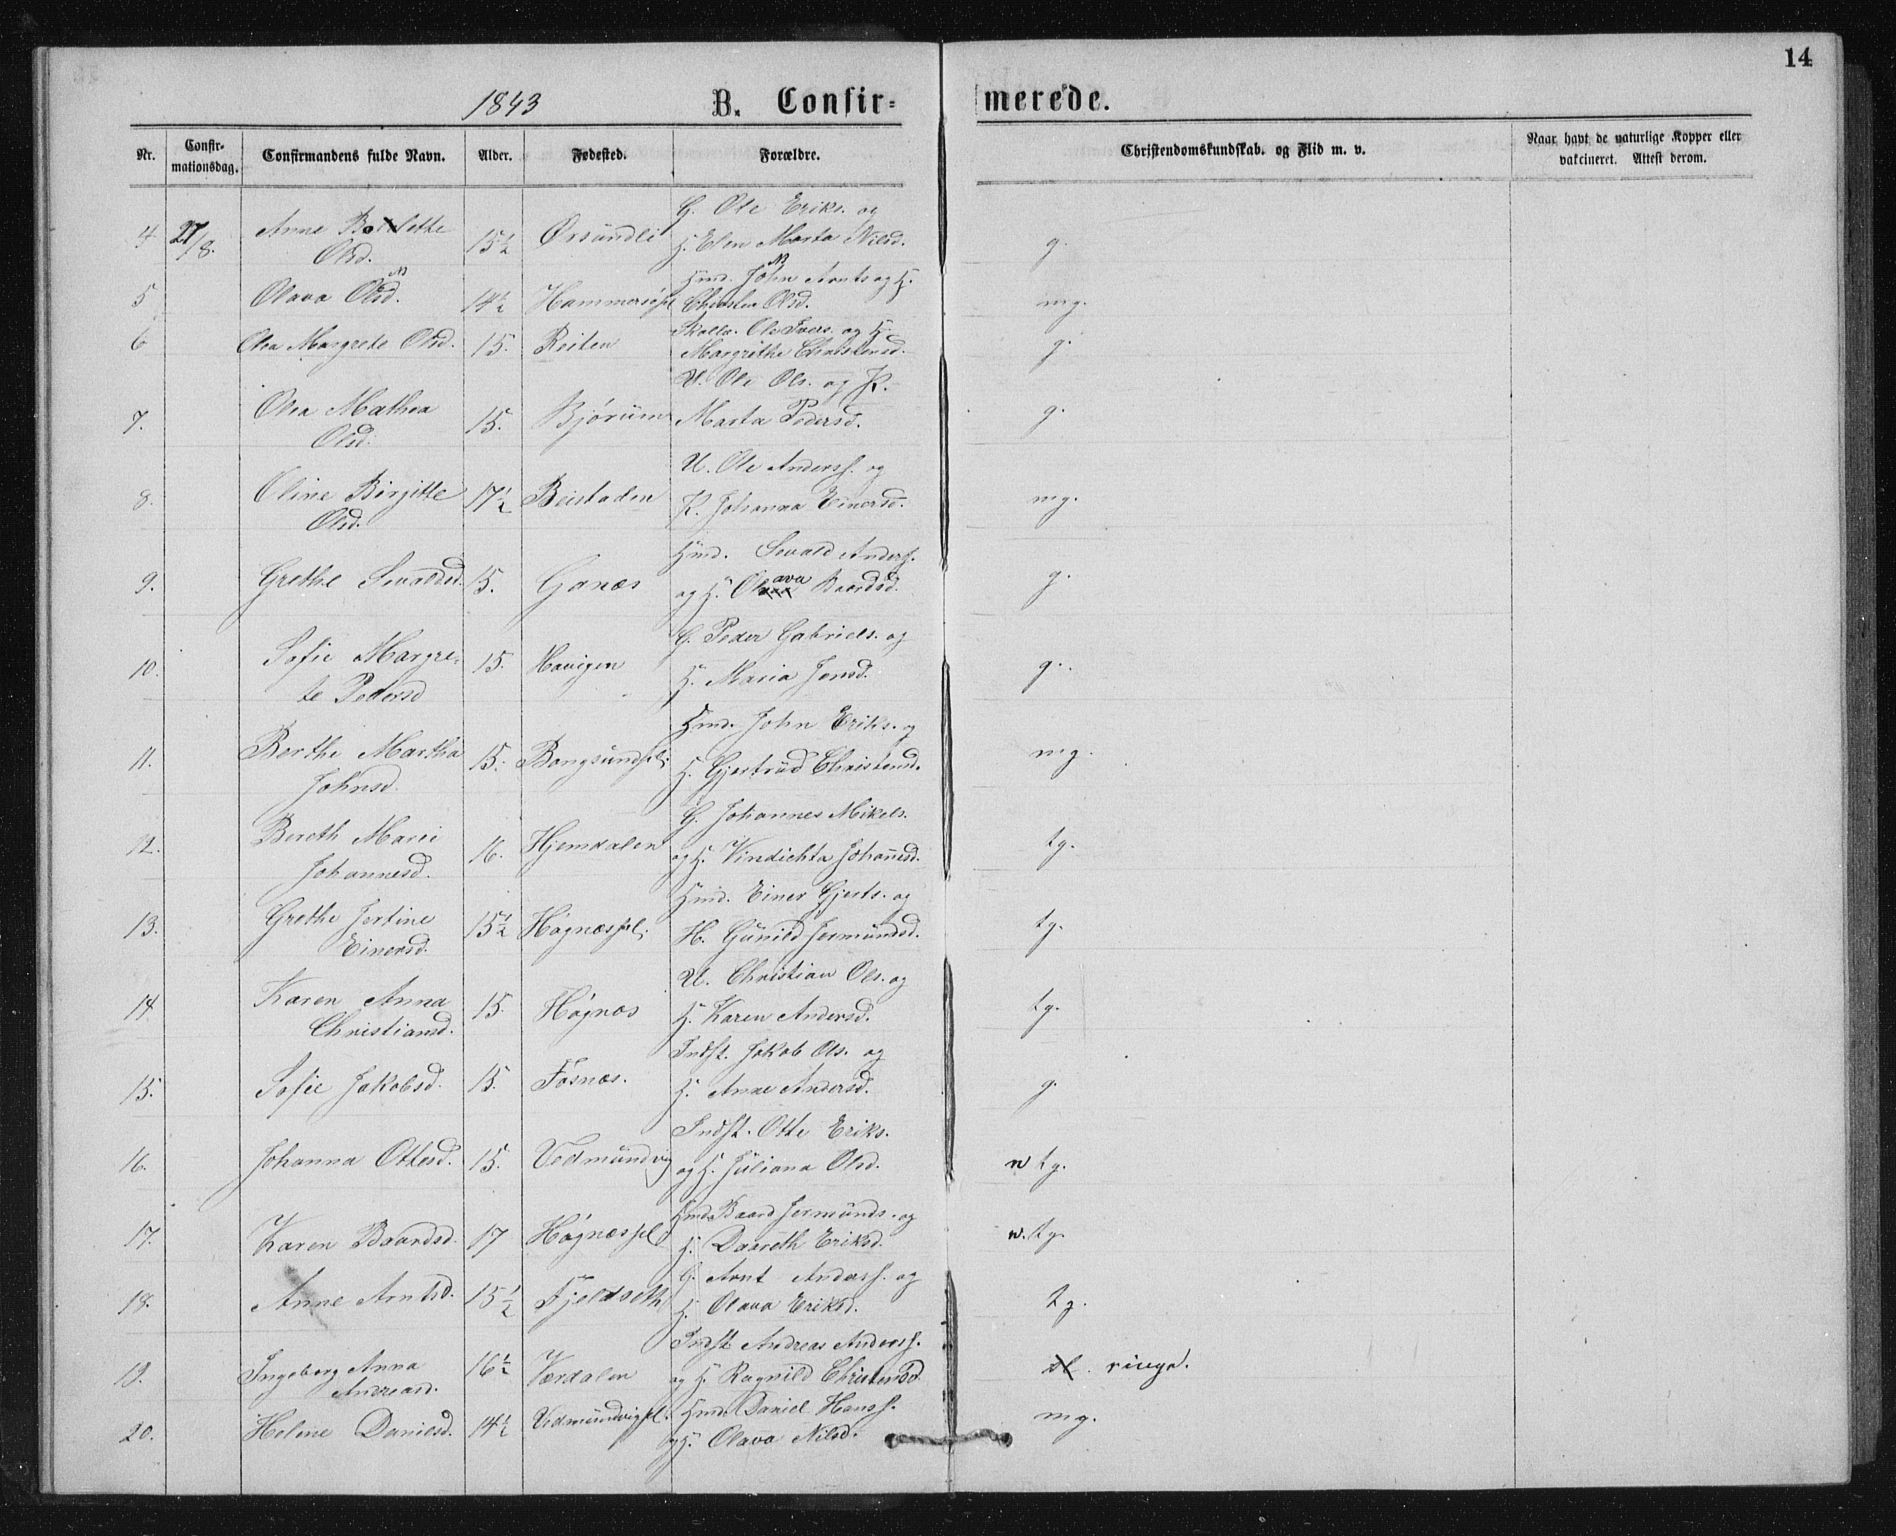 14
1843 B. Confir= merede.
Nr. Confir-mationsdag. Confirmandens fulde Navn. Alder. Fødested. Forældre. Christendomskundskab. og Flid m. v. Naar havt de naturlige Kopper eller vakcineret. Attest derom.
G. Ole Eriks. og
4. 27/8. Anne Bolette 15½ Örsündli H. Elen Marta Nilsd. g.
Olsd.
Hmd. John Arnts og H.
5 Olava Olsd. 14½ Hammer Olsd. mg.
Ole Ivers. og H.
6 Olea Margrete Olsd. 15. Reiten Margrithe Christensd. g.
U. Ole Ols. og K.
7. Olea Mathea 15. Bjørüm Marta Pedersd. g.
Olsd.
U. Ole Anderss. og
8. Oline Birgitte 17½ Beistaden K. Johanna Einersd. mg.
Olsd.
Hmd. Sevald Anderss.
9. Grethe Sevaldsd. 15. Ganæs og H. Olava Baardsd. g.
G. Peder Gabriels. og
10. Sofie Margre- 15. Havigen H. Maria Jonsd. g.
te Pedersd
Hmd. John Eriks. og
11. Berthe Martha 15. Bangsündspl. H. Gjertrüd Christensd. mg.
Johnsd.
G. Johannes Mikels.
12. Bereth Marie 16. Hjemdalen og H. Vindichta Johañesd. tg.
Johannesd.
Hmd. Einer Gjerts. og
13. Grethe Jertine 15½ Høgnæspl. H. Günild Jermündsd. tg.
Einersd.
U. Christian Ols. og
14 Karen Anna 15. Høgnæs H. Karen Andersd. tg.
Christiansd.
Indst. Jakob Ols. og
15. Sofie Jakobsd. 15. Fosnæs. H. Anne Andersd. g.
Indst. Otte Eriks.
16. Johanna Ottesd. 15. Vedmündvig og H. Jüliana Olsd. n tg.
Hmd. Baard Jermünds. og
17. Karen Baardsd. 17 Høgnæspl H. Daareth Eriksd. n. tg.
G. Arnt Anderss. og
18. Anne Arntsd. 15½ Fjeldseth H. Olava Eriksd. tg.
Indst Andreas Anderss.
19. Ingeborg Anna 16½ Værdalen og H. Ragnild Christensd. ringe.
Andreasd.
20. Helene Danielsd. 14½ Vedmündvigpl. Hmd. Daniel Hanss. mg.
og H. Olava Nilsd.